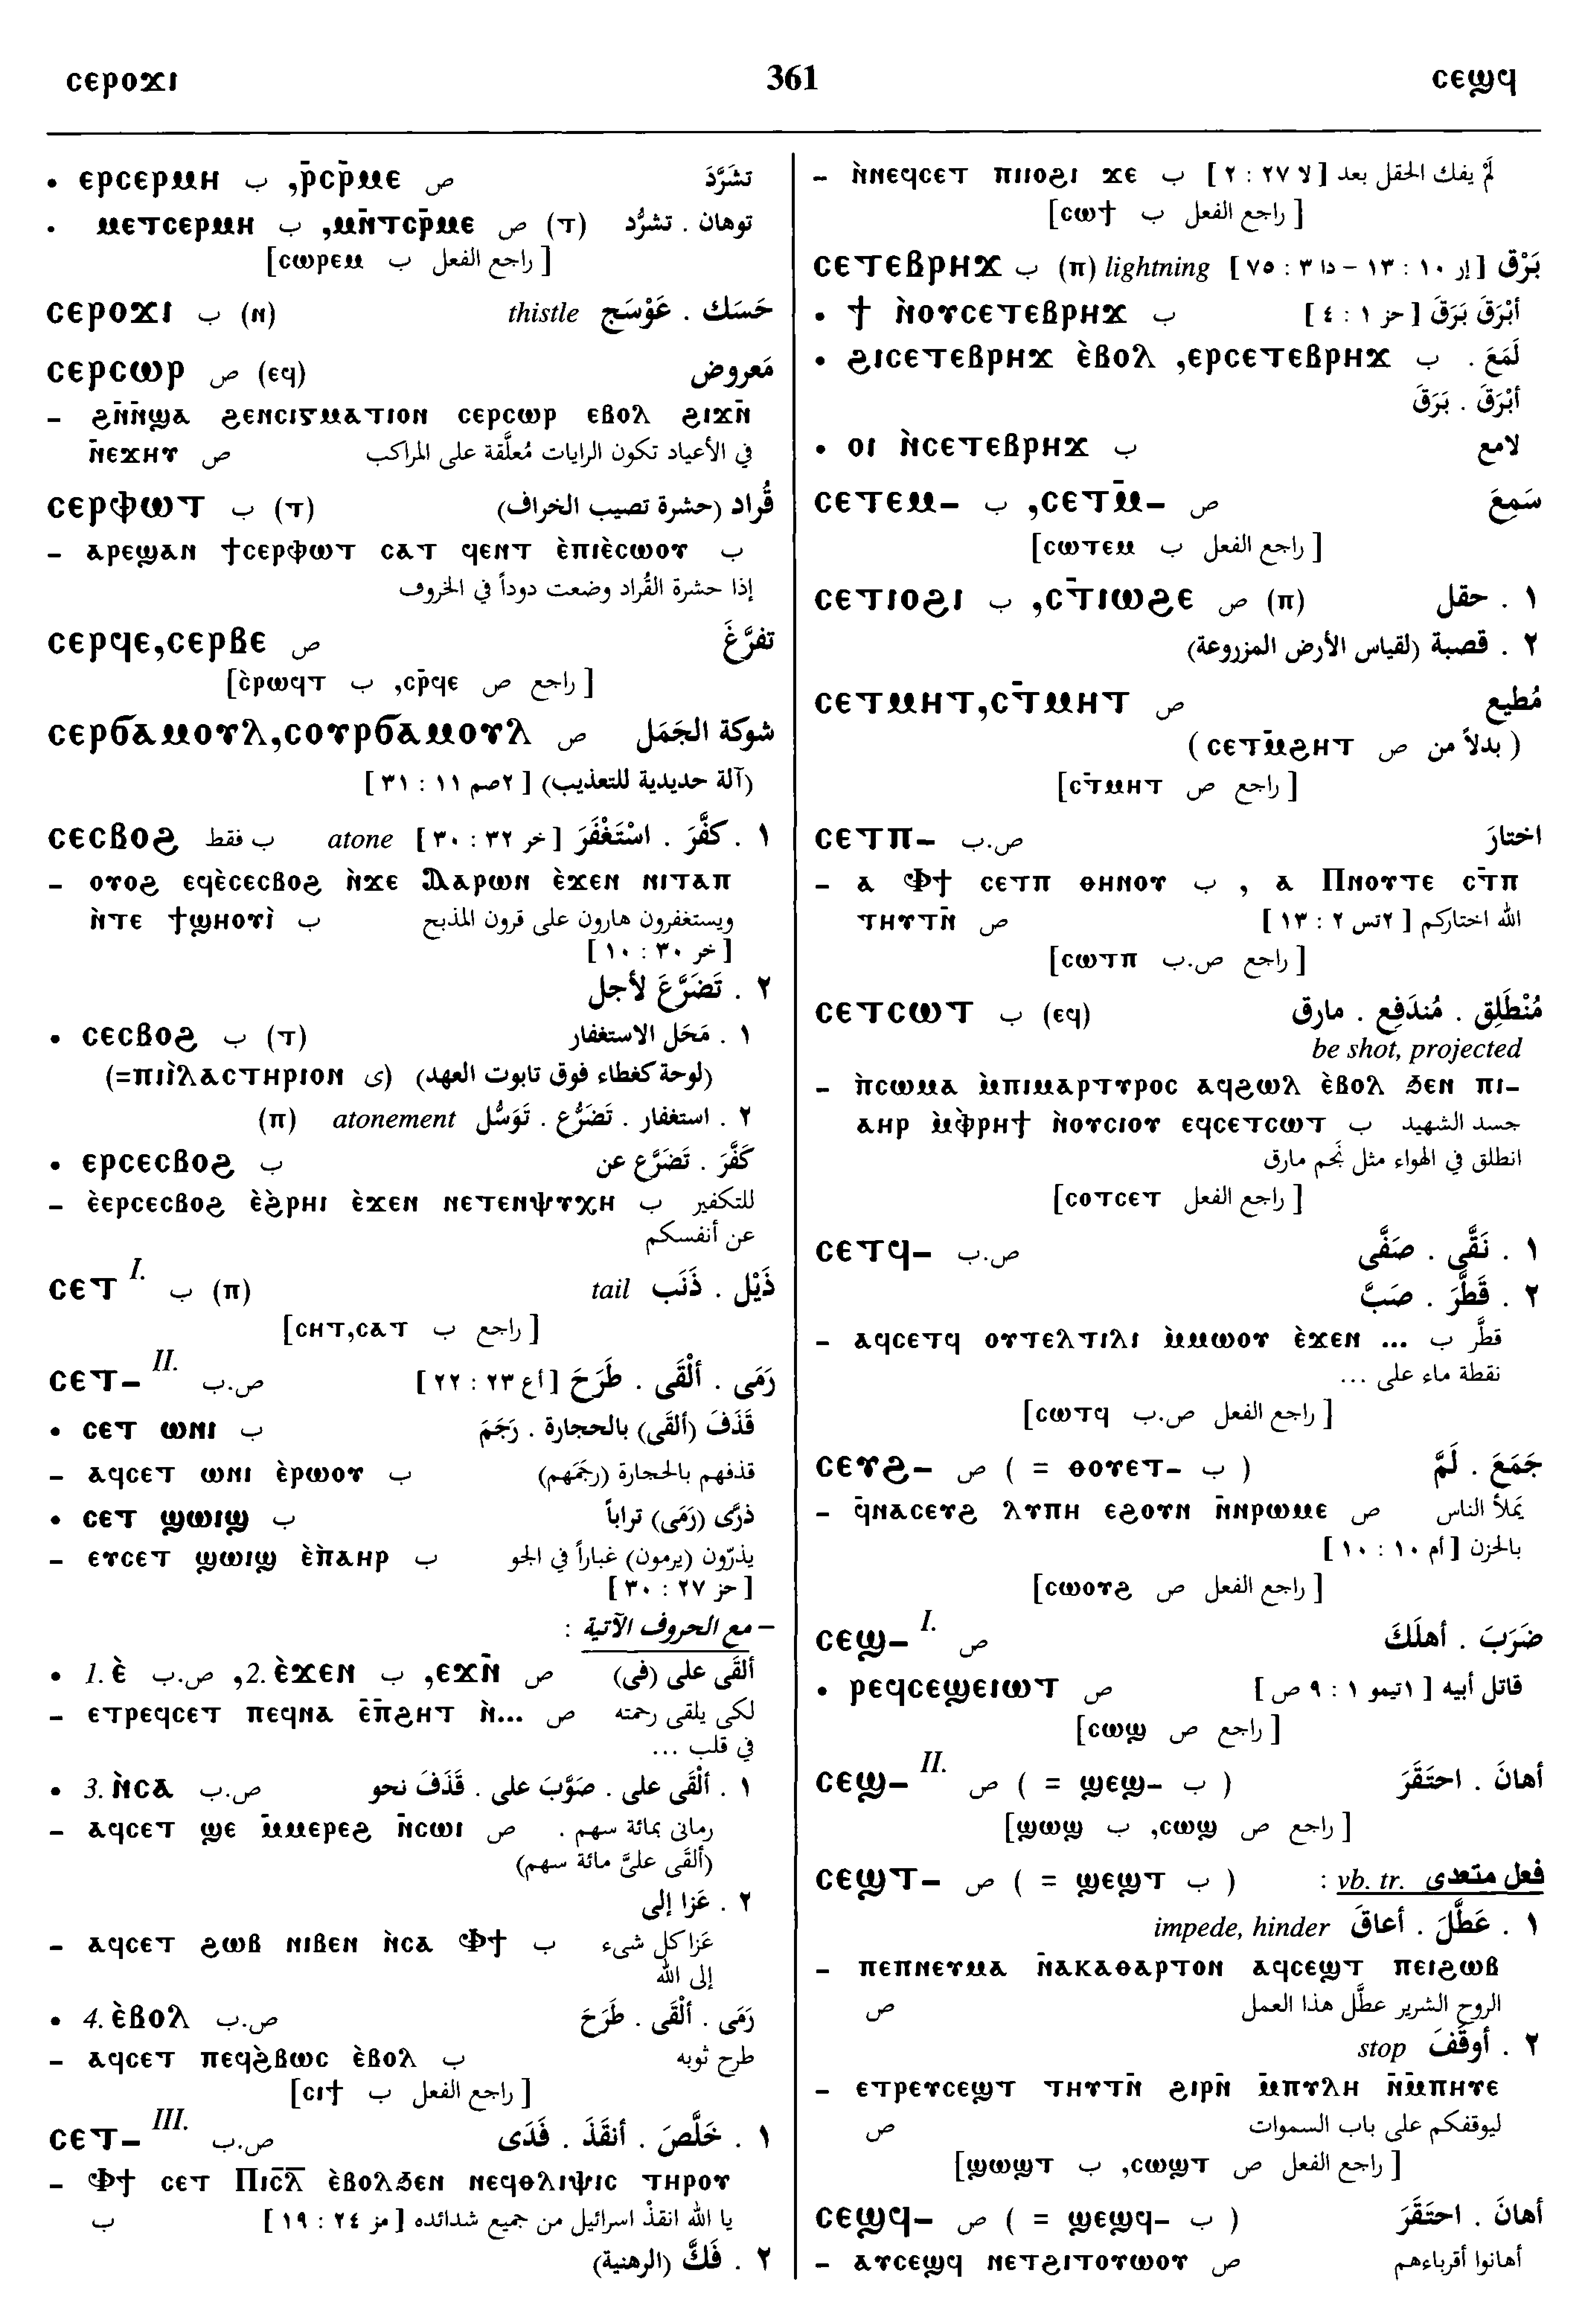 ⲥⲉⲣⲟϫⲓ 361 ⲥⲉϣϥ
• ⲉⲣⲥⲉⲣⲙⲏ ب ,ⲣ̄ⲥⲣ̄ⲙⲉ ص تشَرَّدَ
• ⲙⲉⲧⲥⲉⲣⲙⲏ ب ,ⲙⲛ̄ⲧⲥⲣ̄ⲙⲉ ص (ⲧ) توهان . تشرُّد
[ⲥⲱⲣⲉⲙ ب راجع الفعل ]
ⲥⲉⲣⲟϫⲓ ب (ⲛ) thistle حَسَك . عَوْسَج
ⲥⲉⲣⲥⲱⲣ ص (ⲉϥ) مَعروض
– ϩⲛ̄ⲛ̄ϣⲁ ϩⲉⲛⲥⲓⲅⲙⲁⲧⲓⲟⲛ ⲥⲉⲣⲥⲱⲣ ⲉⲃⲟⲗ ϩⲓϫⲛ̄
ⲛ̄ⲉϫⲏⲩ ص في الأعياد تكون الرايات مُعلَّقة على المراكب
ⲥⲉⲣⲫⲱⲧ ب (ⲧ) قُراد (حشرة تصيب الخراف)
– ⲁⲣⲉϣⲁⲛ ϯⲥⲉⲣⲫⲱⲧ ⲥⲁⲧ ϥⲉⲛⲧ ⲉ̀ⲡⲓⲉ̀ⲥⲱⲟⲩ ب
إذا حشرة القُراد وضعت دوداً في الخروف
ⲥⲉⲣϥⲉ,ⲥⲉⲣⲃⲉ ص تفرَّغَ
[ⲥ̀ⲣⲱϥⲧ ب ,ⲥⲣ̄ϥⲉ ص راجع ]
ⲥⲉⲣϭⲁⲙⲟⲩⲗ,ⲥⲟⲩⲣϭⲁⲙⲟⲩⲗ ص شوكة الجَمَل
(آلة حديدية للتعذيب) [ ٢صم ١١ : ٣١ ]
ⲥⲉⲥⲃⲟϩ ب فقط atone ١ . كفَّرَ . اسْتَغْفَرَ [ خر ٣٢ : ٣٠ ]
– ⲟⲩⲟϩ ⲉϥⲉ̀ⲥⲉⲥⲃⲟϩ ⲛ̀ϫⲉ Ⲁⲁⲣⲱⲛ ⲉ̀ϫⲉⲛ ⲛⲓⲧⲁⲡ
ⲛ̀ⲧⲉ ϯϣⲏⲟⲩⲓ̀ ب ويستغفرون هارون على قرون المذبح
[ خر ٣٠ : ١٠ ]
٢ . تَضَرَّعَ لأجل
• ⲥⲉⲥⲃⲟϩ ب (ⲧ) ١ . مَحَل الاستغفار
(لوحة كغطاء فوق تابوت العهد) (ى ⲡⲓⲓ̀ⲗⲁⲥⲧⲏⲣⲓⲟⲛ=)
٢ . استغفار . تَضَرُّع . تَوَسُّل atonement (ⲡ)
• ⲉⲣⲥⲉⲥⲃⲟϩ ب كَفَّرَ . تَضَرَّع عن
– ⲉ̀ⲉⲣⲥⲉⲥⲃⲟϩ ⲉ̀ϩ̀ⲣⲏⲓ ⲉ̀ϫⲉⲛ ⲛⲉⲧⲉⲛⲯⲩⲭⲏ ب للتكفير
عن أنفسكم
ⲥⲉⲧ I. ب (ⲡ) tail ذَيْل . ذَنَب
[ⲥⲏⲧ,ⲥⲁⲧ ب راجع ]
ⲥⲉⲧ– II. ص.ب رَمَى . ألْقَى . طَرَحَ [ أع ٢٣ : ٢٢ ]
• ⲥⲉⲧ ⲱⲛⲓ ب قَذَفَ (ألقَى) بالحجارة . رَجَمَ
– ⲁϥⲥⲉⲧ ⲱⲛⲓ ⲉ̀ⲣⲱⲟⲩ ب قذفهم بالحجارة (رجَمهم)
• ⲥⲉⲧ ϣⲱⲓϣ ب ذرَّى (رَمَى) تراباً
– ⲉⲩⲥⲉⲧ ϣⲱⲓϣ ⲉ̀ⲡ̀ⲁⲏⲣ ب يذرّون (يرمون) غباراً في الجو
[ حز ٢٧ : ٣٠ ]
– مع الحروف الآتية :
• 1. ⲉ̀ ص.ب ,2. ⲉ̀ϫⲉⲛ ب ,ⲉϫⲛ̄ ص ألقَى على (فى)
– ⲉⲧⲣⲉϥⲥⲉⲧ ⲡⲉϥⲛⲁ ⲉ̄ⲡ̄ϩⲏⲧ ⲛ̀... ص لكى يلقى رحمته
في قلب ...
• 3. ⲛ̀ⲥⲁ ص.ب ١ . ألْقَى على . صَوَّبَ على . قَذَفَ نحو
– ⲁϥⲥⲉⲧ ϣⲉ ⲙ̄ⲙⲉⲣⲉϩ ⲛ̄ⲥⲱⲓ ص رمانى بمائة سهم .
(ألقَى علىَّ مائة سهم)
٢ . عَزا إلى
– ⲁϥⲥⲉⲧ ϩⲱⲃ ⲛⲓⲃⲉⲛ ⲛ̀ⲥⲁ Ⲫϯ ب عَزا كل شىء
إلى الله
• 4. ⲉ̀ⲃⲟⲗ ص.ب رَمَى . ألْقَى . طَرَحَ
– ⲁϥⲥⲉⲧ ⲡⲉϥϩ̀ⲃⲱⲥ ⲉ̀ⲃⲟⲗ ب طرح ثوبه
[ⲥⲓϯ ب راجع الفعل ]
ⲥⲉⲧ– III. ص.ب ١ . خَلَّصَ . أنقَذَ . فَدَى
– Ⲫϯ ⲥⲉⲧ Ⲡⲓⲥ̄ⲗ̄ ⲉ̀ⲃⲟⲗϧⲉⲛ ⲛⲉϥⲑⲗⲓⲯⲓⲥ ⲧⲏⲣⲟⲩ
ب يا الله انقذْ اسرائيل من جميع شدائده [ مز ٢٤ : ١٩ ]
٢ . فَكَّ (الرهنية)
– ⲛ̀ⲛⲉϥⲥⲉⲧ ⲡⲓⲓⲟϩⲓ ϫⲉ ب لَمْ يفك الحقل بعد [ لا ٢٧ : ٢ ]
[ⲥⲱϯ ب راجع الفعل ]
ⲥⲉⲧⲉⲃⲣⲏϫ ب (ⲡ) lightning بَرْق [ إر ١٠ : ١٣ – دا ٣ : ٧٥ ]
• ϯ ⲛ̀ⲟⲩⲥⲉⲧⲉⲃⲣⲏϫ ب أبْرَقَ بَرَقَ [ حز ١ : ٤ ]
• ϩⲓⲥⲉⲧⲉⲃⲣⲏϫ ⲉ̀ⲃⲟⲗ ,ⲉⲣⲥⲉⲧⲉⲃⲣⲏϫ ب لَمَعَ .
أبْرَقَ . بَرَقَ
• ⲟⲓ ⲛ̀ⲥⲉⲧⲉⲃⲣⲏϫ ب لامع
ⲥⲉⲧⲉⲙ– ب ,ⲥⲉⲧⲙ̄– ص سَمِعَ
[ⲥⲱⲧⲉⲙ ب راجع الفعل ]
ⲥⲉⲧⲓⲟϩⲓ ب ,ⲥⲧ̄ⲓⲱϩⲉ ص (ⲡ) ١ . حقل
٢ . قصبة (لقياس الأرض المزروعة)
ⲥⲉⲧⲙⲏⲧ,ⲥⲧ̄ⲙⲏⲧ ص مُطيع
( بدلاً من ص ⲥⲉⲧⲙ̄ϩⲏⲧ )
[ⲥⲧ̄ⲙⲏⲧ ص راجع ]
ⲥⲉⲧⲡ– ص.ب اختارَ
– ⲁ Ⲫϯ ⲥⲉⲧⲡ ⲑⲏⲛⲟⲩ ب , ⲁ Ⲡⲛⲟⲩⲧⲉ ⲥⲧ̄ⲡ
ⲧⲏⲩⲧⲛ̄ ص الله اختاركم [ ٢تس ٢ : ١٣ ]
[ⲥⲱⲧⲡ ص.ب راجع ]
ⲥⲉⲧⲥⲱⲧ ب (ⲉϥ) مُنْطَلِق . مُندَفِع . مارق
be shot, projected
– ⲡ̀ⲥⲱⲙⲁ ⲙ̀ⲡⲓⲙⲁⲣⲧⲩⲣⲟⲥ ⲁϥϩⲱⲗ ⲉ̀ⲃⲟⲗ ϧⲉⲛ ⲡⲓ–
ⲁⲏⲣ ⲙ̀ⲫ̀ⲣⲏϯ ⲛ̀ⲟⲩⲥⲓⲟⲩ ⲉϥⲥⲉⲧⲥⲱⲧ ب جسد الشهيد
انطلق في الهواء مثل نَجم مارق
[ⲥⲟⲧⲥⲉⲧ راجع الفعل ]
ⲥⲉⲧϥ– ص.ب ١ . نَقَّى . صَفَّى
٢ . قَطَّرَ . صَبَّ
– ⲁϥⲥⲉⲧϥ ⲟⲩⲧⲉⲗⲧⲓⲗⲓ ⲙ̀ⲙⲱⲟⲩ ⲉ̀ϫⲉⲛ ... ب قطَّر
نقطة ماء على ...
[ⲥⲱⲧϥ ص.ب راجع الفعل ]
ⲥⲉⲩϩ– ص ( = ⲑⲟⲩⲉⲧ– ب ) جَمَعَ . لَمَّ
– ϥ̄ⲛⲁⲥⲉⲩϩ ⲗⲩⲡⲏ ⲉϩⲟⲩⲛ ⲛ̄ⲛⲣⲱⲙⲉ ص يَملأ الناس
بالحزن [ أم ١٠ : ١٠ ]
[ⲥⲱⲟⲩϩ ص راجع الفعل ]
ⲥⲉϣ– I. ص ضَرَبَ . أهلَكَ
• ⲣⲉϥⲥⲉϣⲉⲓⲱⲧ ص قاتل أبيه [ ١تيمو ١ : ٩ ص ]
[ⲥⲱϣ ص راجع ]
ⲥⲉϣ– II. ص ( = ϣⲉϣ– ب ) أهانَ . احتَقَرَ
[ϣⲱϣ ب ,ⲥⲱϣ ص راجع ]
ⲥⲉϣⲧ– ص ( = ϣⲉϣⲧ ب ) فعل متعدى vb. tr. :
١ . عَطَّلَ . أعاقَ impede, hinder
– ⲡⲉⲡⲛⲉⲩⲙⲁ ⲛ̄ⲁⲕⲁⲑⲁⲣⲧⲟⲛ ⲁϥⲥⲉϣⲧ ⲡⲉⲓϩⲱⲃ
ص الروح الشرير عطَّل هذا العمل
٢ . أوقَفَ stop
– ⲉⲧⲣⲉⲩⲥⲉϣⲧ ⲧⲏⲩⲧⲛ̄ ϩⲓⲣⲛ̄ ⲙ̄ⲡⲩⲗⲏ ⲛ̄ⲙ̄ⲡⲏⲩⲉ
ص ليوقفكم على باب السموات
[ϣⲱϣⲧ ب ,ⲥⲱϣⲧ ص راجع الفعل ]
ⲥⲉϣϥ– ص ( = ϣⲉϣϥ– ب ) أهانَ . احتَقَرَ
– ⲁⲩⲥⲉϣϥ ⲛⲉⲧϩⲓⲧⲟⲩⲱⲟⲩ ص أهانوا أقرباءهم